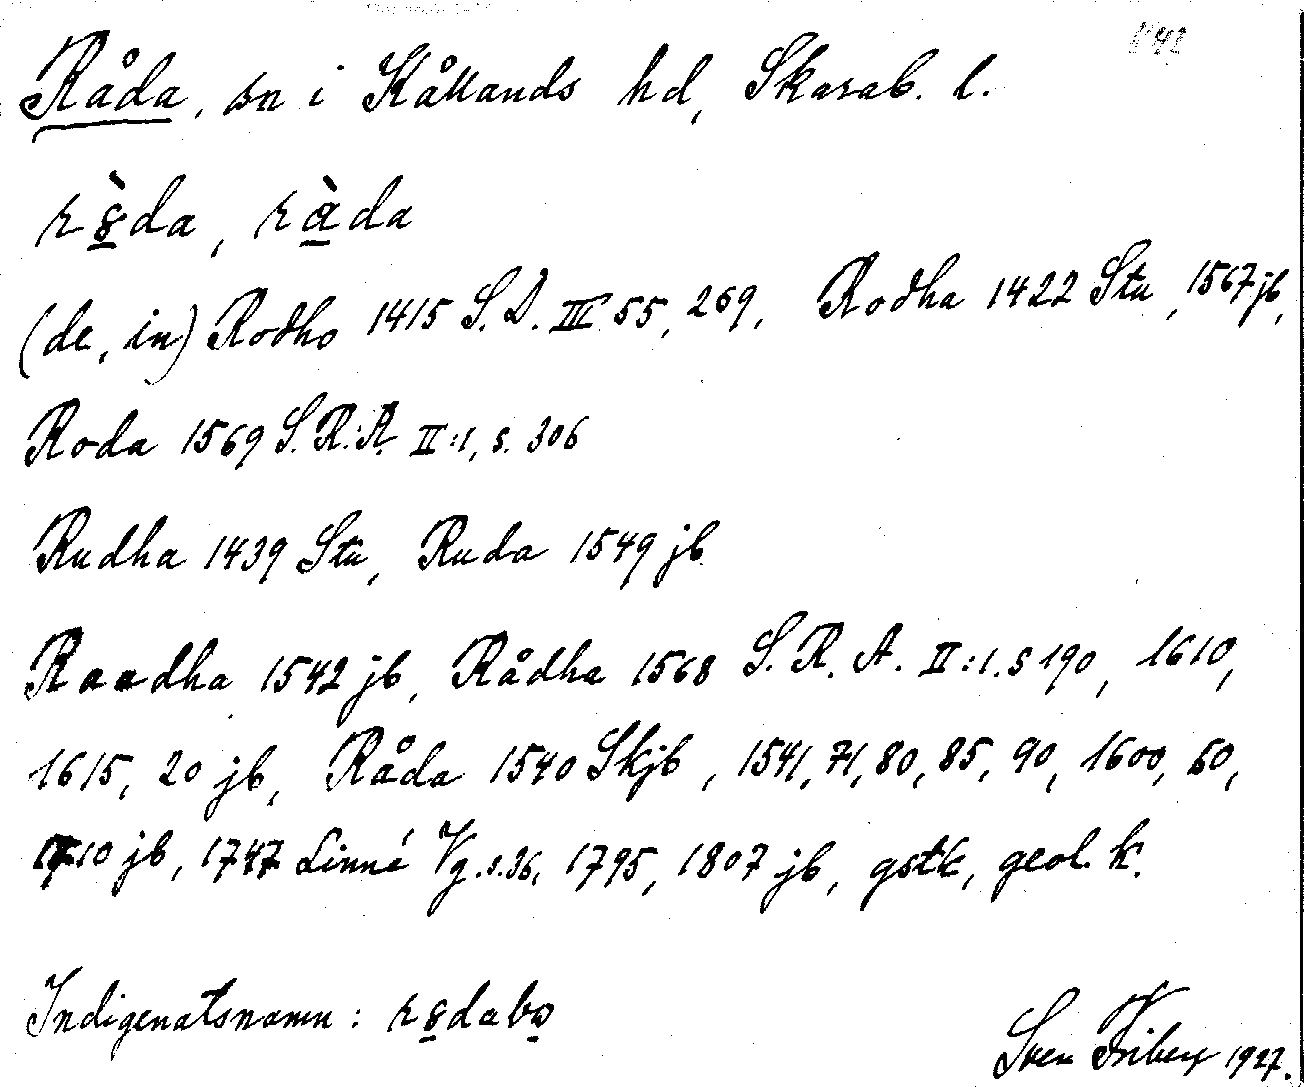 Råda, sn i Kållands hd, Skarab. l.
(de, in) Rodho 1415 S.D. III 55, 269, Rodha 1422 Stu, 1567 jb,
Roda 1569 S.R.A. II:1, s. 306
Rudha 1439 Stu, Ruda 1549 jb
Raadha 1542 jb, Rådha 1568 S.R.A. II:1. s 190, 1610,
1615, 20 jb, Råda 1540 Skjb, 1541, 71, 80, 85, 90, 1600, 50,
1710 jb, 1747 Linné Vg. s. 36, 1795, 1807 jb, gstk, geol. k.
Indigenatsnamn:
Sven Friberg 1927.